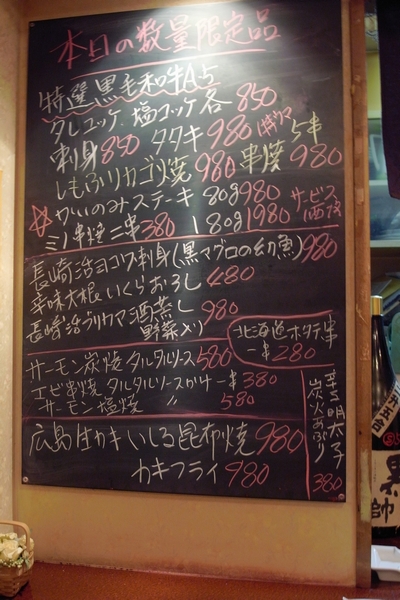 本日の数量限定品
特選黒毛和牛A5
タレユッケ、塩ユッケ各850
刺身850 タタキ980 串焼 5串980
しもふりカゴ焼980
☆かいのみステーキ 80g980
ミノ串焼 二串380 180g1980 サービス価格
長崎活ヨコワ刺身(黒マグロの幼魚)980
辛味大根いくらおろし480
長崎活ブリカマ酒蒸し 野菜入り980
北海道ホタテ串 一串280
サーモン炭焼タルタルソース580
エビ串焼タルタルソースがけ一串380
サーモン塩焼 〃 580
辛子明太子炭火あぶり380
広島生かきいしる昆布焼980
カキフライ980